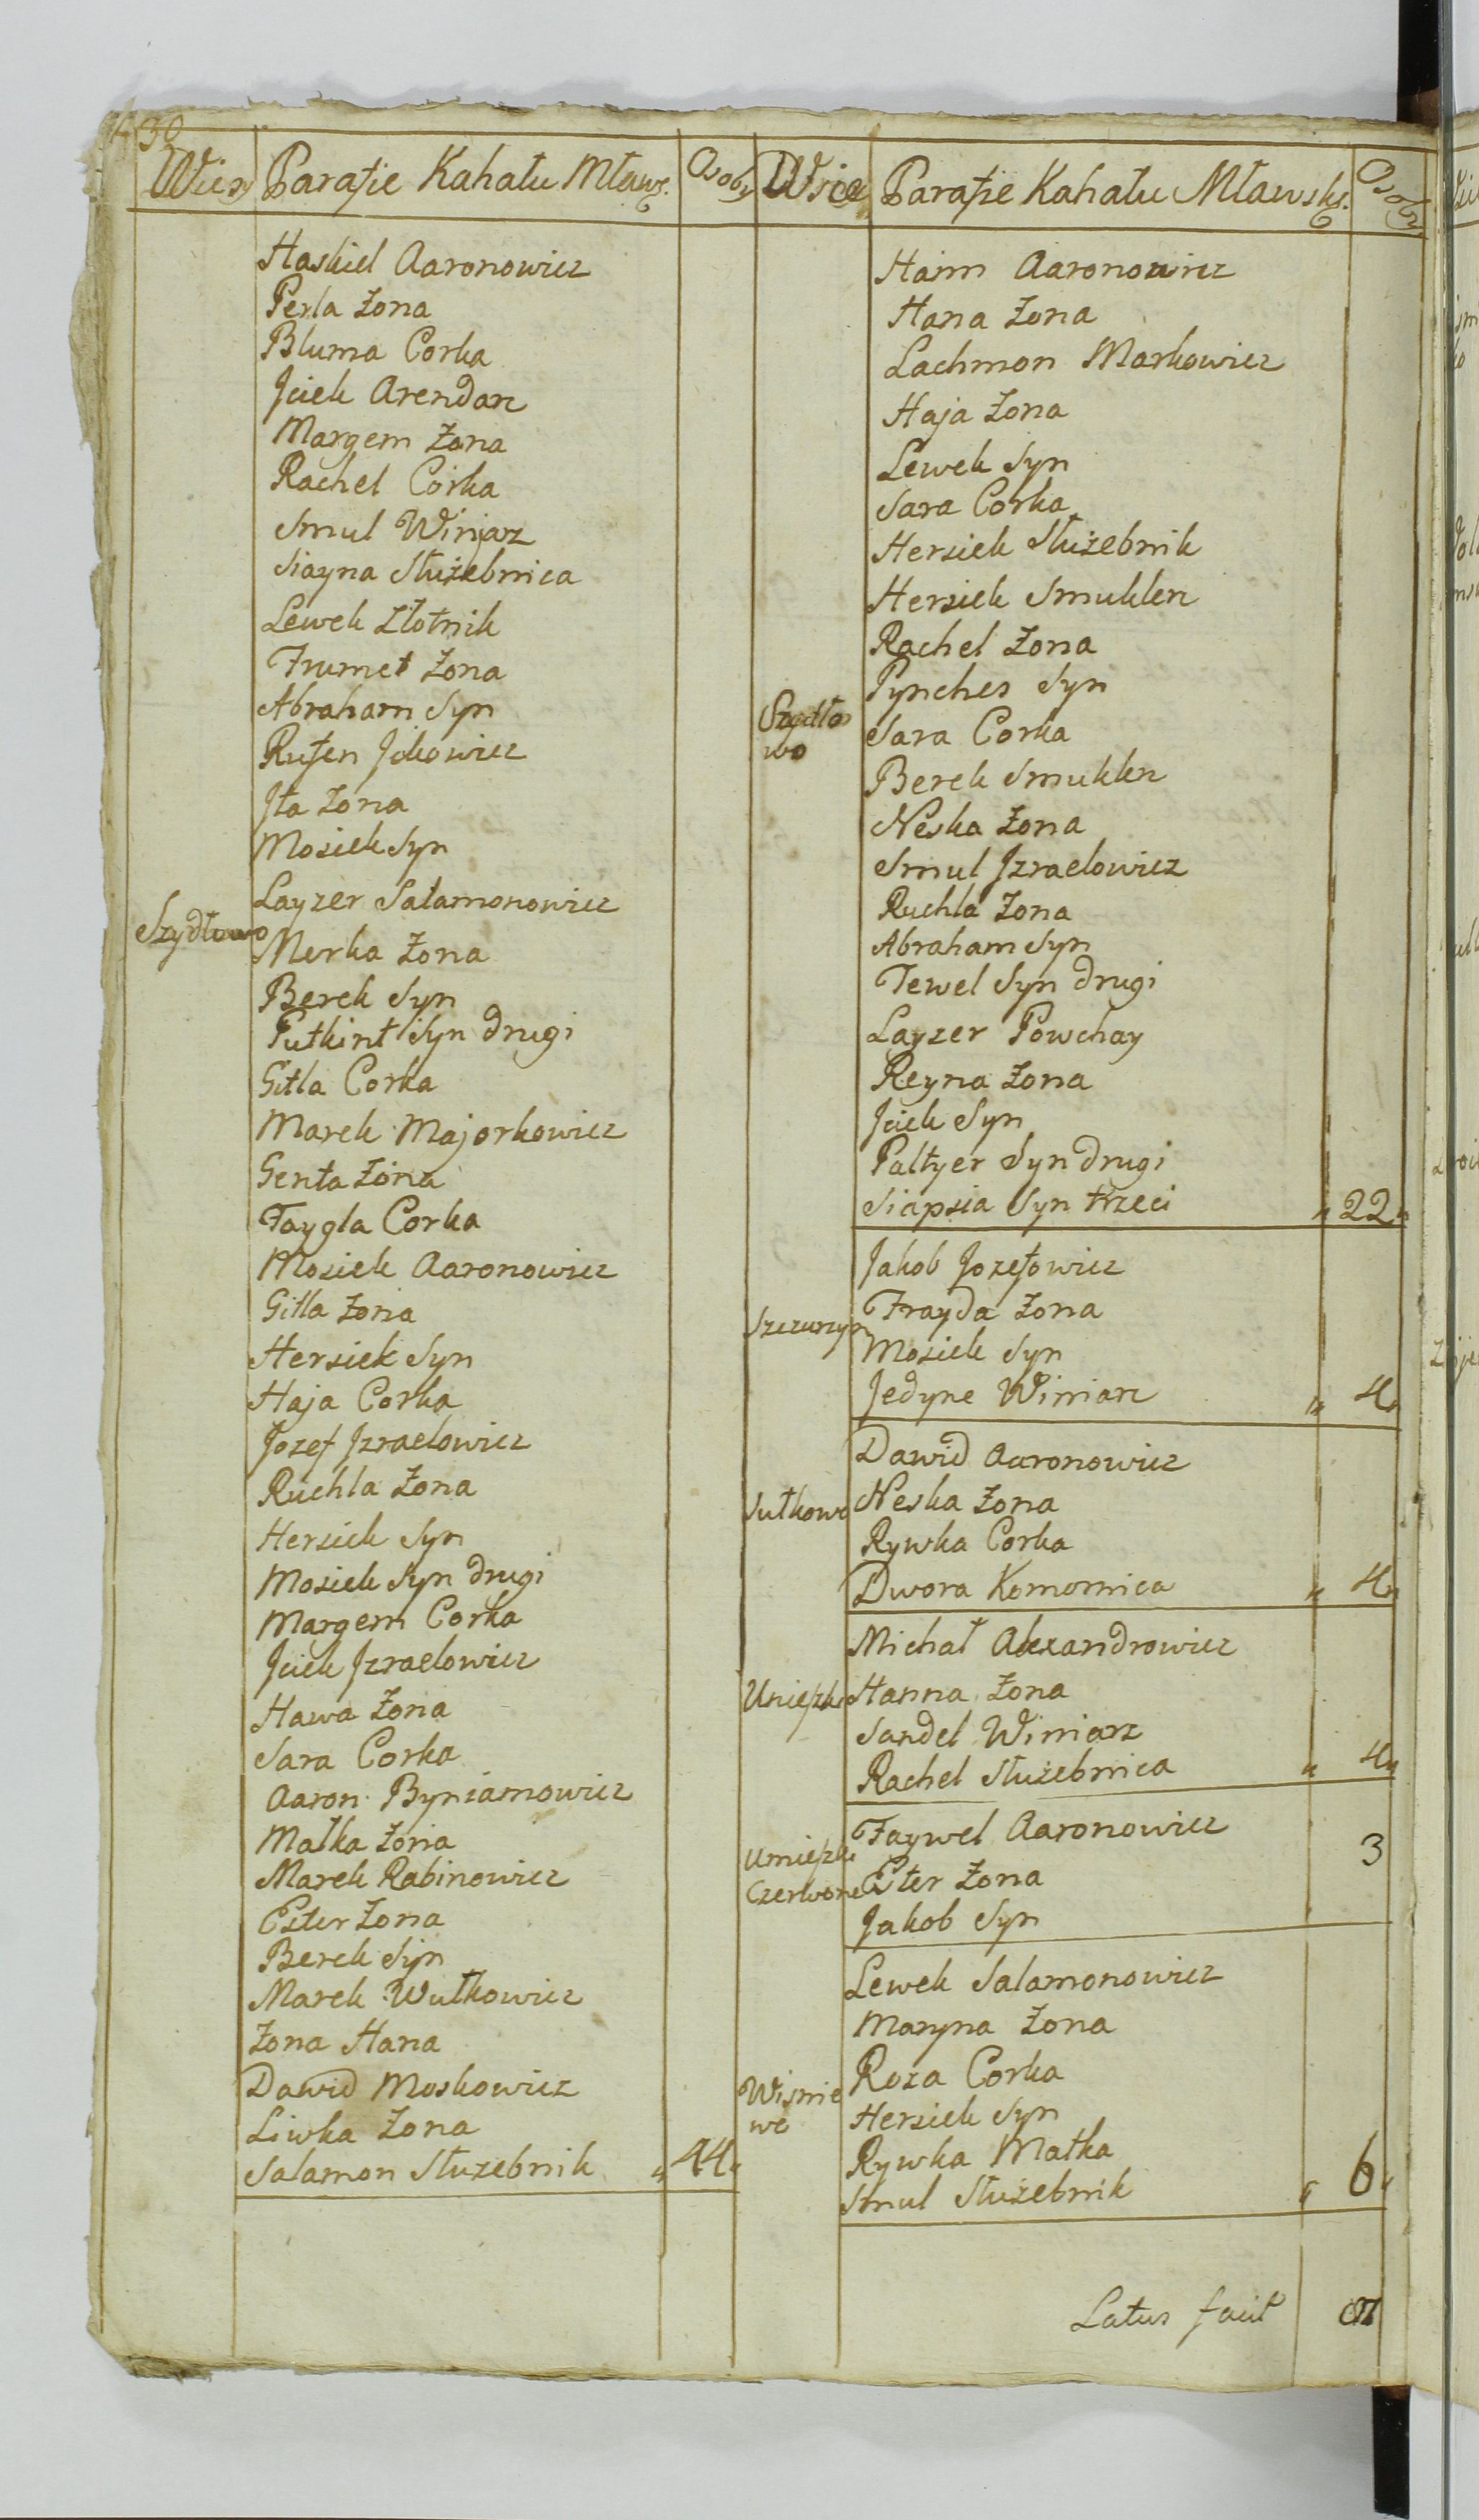 Wies Parafie Kahału Mławs. Osoby
Haskiel Aaronowicz
Perla Zona
Bluma Corka
Jciek Arendarz
Margem Zona
Rachel Córka
Smul Winjarz
Siayna Służebnica
Lewek Złotnik
Frumet Zona
Abraham Syn
Rufen Jckowicz
Jta Zona
Mosiek Syn
Layzer Salamonowicz
Szydłowo
Merka Zona
Berek Syn
Putkint Syn drugi
Gitla Corka
Marek Majorkowicz
Genta Zona
Faygla Corka
Mosiek Aaronowicz
Gitla Zona
Hersiek Syn
Haja Corka
Jozef Jzraelowicz
Ruchla Zona
Hersiek Syn
Mosiek Syn drugi
Margem Corka
Jciek Jzraelowicz
Hawa Zona
Sara Corka
Aaron Byniamowicz
Małka Zona
Marek Rabinowicz
Ester Zona
Berek Syn
Marek Wulkowicz
Zona Hana
Dawid Moskowicz
Liwka Zona
Salamon Służebnik „ 44 „
Wsie Parafie Kahału Mławsks. Osoby
Haim Aaronowicz
Hana Zona
Lachmon Markowicz
Haja Zona
Lewek Syn
Sara Corka
Hersiek Służebnik
Hersiek Smuklerz
Rachel Zona
Pynches Syn
Szydło
wo
Sara Corka
Berek Smuklerz
Neska Zona
Smul Jzraelowicz
Ruchla Zona
Abraham Syn
Tewel Syn drugi
Layzer Powchay
Reyna Zona
Jciek Syn
Paltyer Syn drugi
Siapsia Syn trzeci „ 22 „
Jakob Jozefowicz
Frayda Zona
Mosiek Syn
Jedyne Winiarz „ 4 „
Dawid Aaronowicz
Neska Zona
Rywka Corka
Dwora Komornica „ 4 „
Michał Alexandrowicz
Hanna Zona
Sandel Winiarz
Rachel Służebnica „ 4 „
Faywel Aaronowicz 3
Czerwone Ester Zona
Jakob Syn
Lewek Salamonowicz
Maryna Zona
Roza Corka
Wisnie
we
Hersiek Syn
Rywka Matka
Smul Służebnik „ 6 „
Latus facit